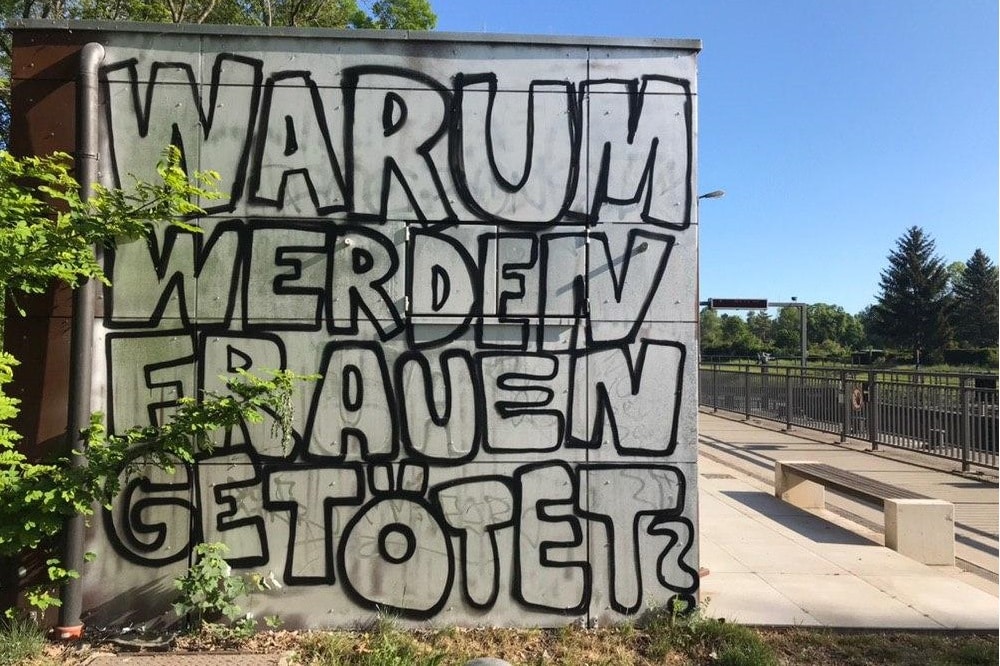 WARUM
WERDEN
FRAUEN
GETÖTET?